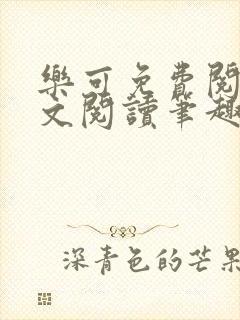 樂可免費閱
文閱讀筆趣
深青色的芒果